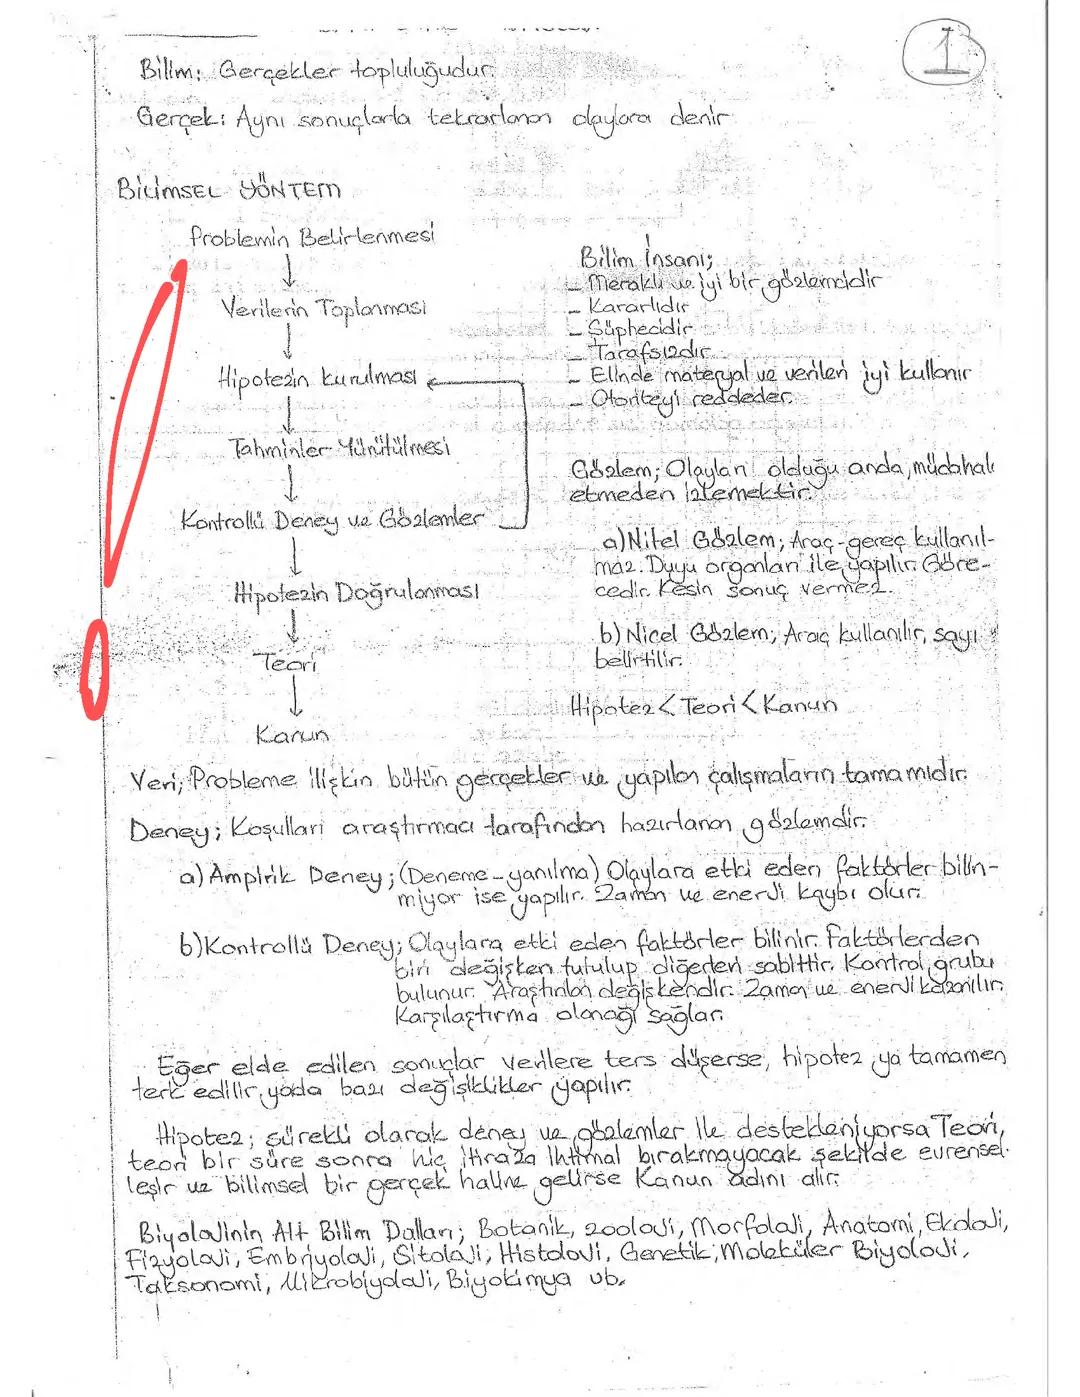 1
Bilim; Gerçekler topluluğudur.
Gerçek: Aynı sonuçlarla tekrarlanan olaylara denir
BİLİMSEL YÖNTEM
Problemin Belirlenmesi
Verilerin Toplanması
Hipotezin kurulması
Tahminler Yürütülmesi
Kontrollü Deney ve Gözlemler
Hipotezin Doğrulanması
Teori
Kanun
Bilim İnsanı;
- Meraklı ve iyi bir gözlemcidir
- Kararlıdır
- Şüphecidir
- Tarafsızdır
- Elinde materyal ve verileri iyi kullanır
- Otoriteyi reddeder.
Gözlem; Olayları olduğu anda, müdahale
etmeden izlemektir.
a) Nitel Gözlem; Araç-gereç kullanıl-
maz. Duyu organları ile yapılır. Göre-
cedir. Kesin sonuç vermez.
b) Nicel Gözlem; Araç kullanılır, sayı
belirtilir.
Hipotez < Teori < Kanun
Veri; Probleme ilişkin bütün gerçekler ve yapılan çalışmaların tamamıdır.
Deney; Koşulları araştırmacı tarafından hazırlanan gözlemdir.
a) Ampirik Deney; (Deneme-yanılma) Olaylara etki eden faktörler bilin-
miyor ise yapılır. Zaman ve enerji kaybı olur.
b) Kontrollü Deney; Olaylara etki eden faktörler bilinir. Faktörlerden
biri değişken tutulup diğerleri sabittir. Kontrol grubu
bulunur. Araştırılan değişkendir. Zaman ve enerji kazanılır.
Karşılaştırma olanağı sağlar.
Eğer elde edilen sonuçlar verilere ters düşerse, hipotez ya tamamen
terk edilir, yada bazı değişiklikler yapılır.
Hipotez; sürekli olarak deney ve gözlemler ile destekleniyorsa Teori,
teori bir süre sonra hiç itiraza ihtimal bırakmayacak şekilde evrensel-
leşir ve bilimsel bir gerçek haline gelirse Kanun adını alır.
Biyolojinin Alt Bilim Dalları; Botanik, Zooloji, Morfoloji, Anatomi, Ekoloji,
Fizyoloji, Embriyoloji, Sitoloji, Histoloji, Genetik, Moleküler Biyoloji,
Taksonomi, Mikrobiyoloji, Biyokimya vb.